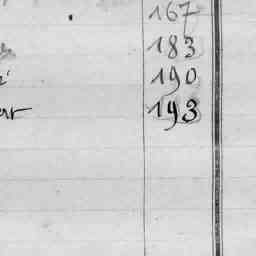 167
183
190
193